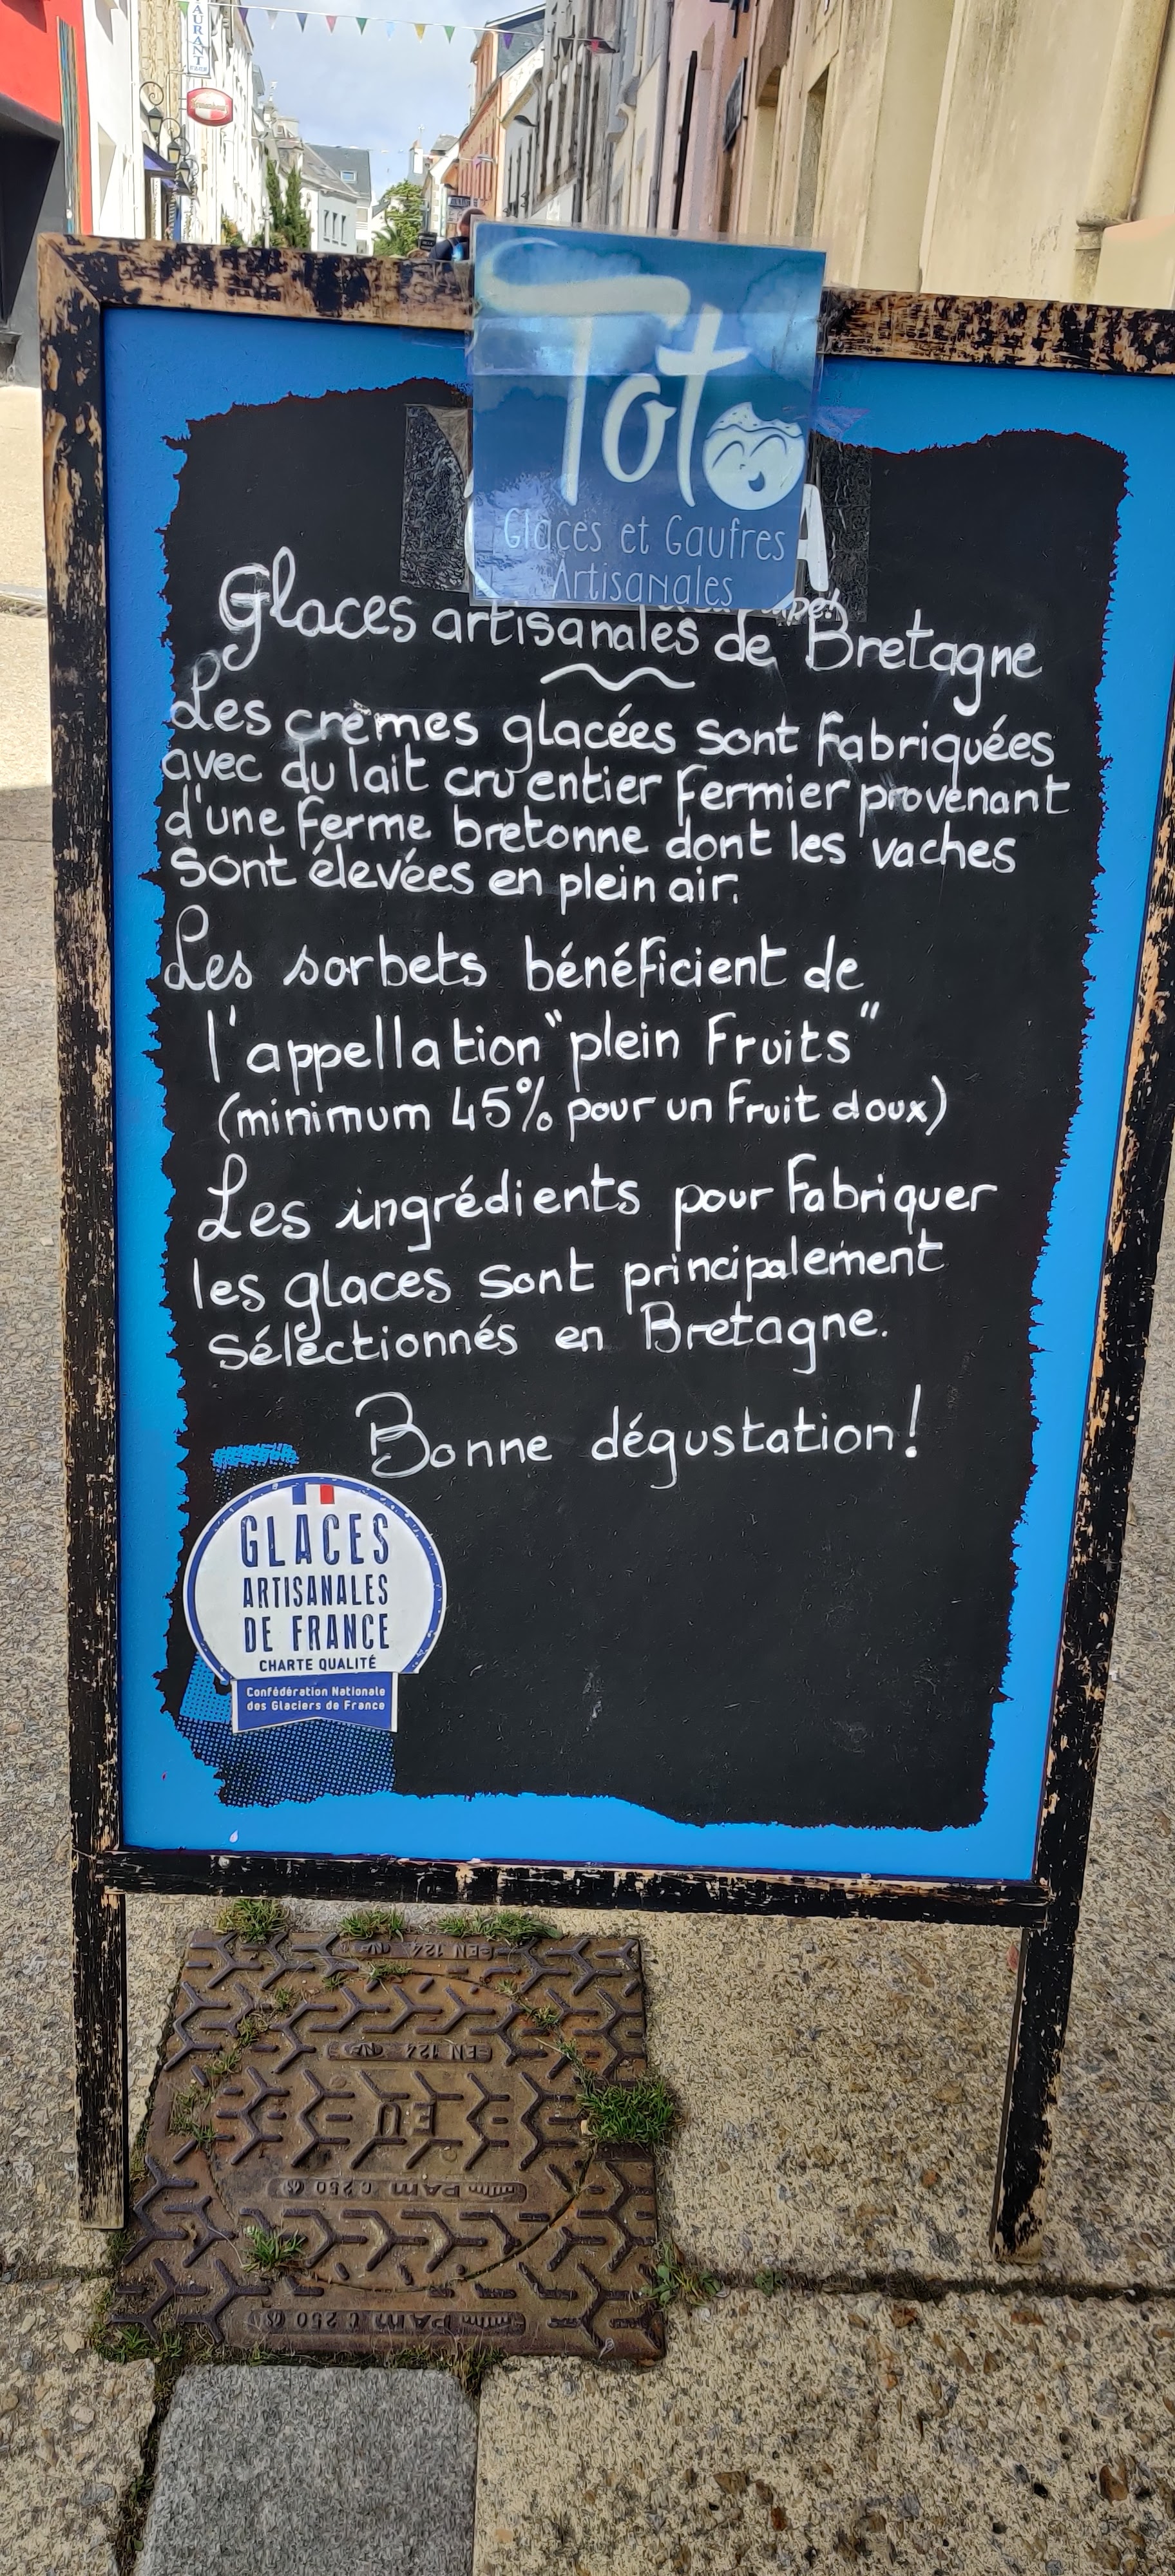 Toto
Glaces et Gaufres
Artisanales
Glaces artisanales de Bretagne
Les crèmes glacées sont fabriquées
avec du lait cru entier fermier provenant
d'une ferme bretonne dont les vaches
sont élevées en plein air.
Les sorbets bénéficient de
l'appellation "plein fruits"
(minimum 45% pour un fruit doux)
Les ingrédients pour fabriquer
les glaces sont principalement
sélectionnés en Bretagne.
Bonne dégustation!
GLACES
ARTISANALES
DE FRANCE
CHARTE QUALITÉ
Confédération Nationale
des Glaciers de France
EN 124
EN 124
EU
PAM C 250
PAM C 250